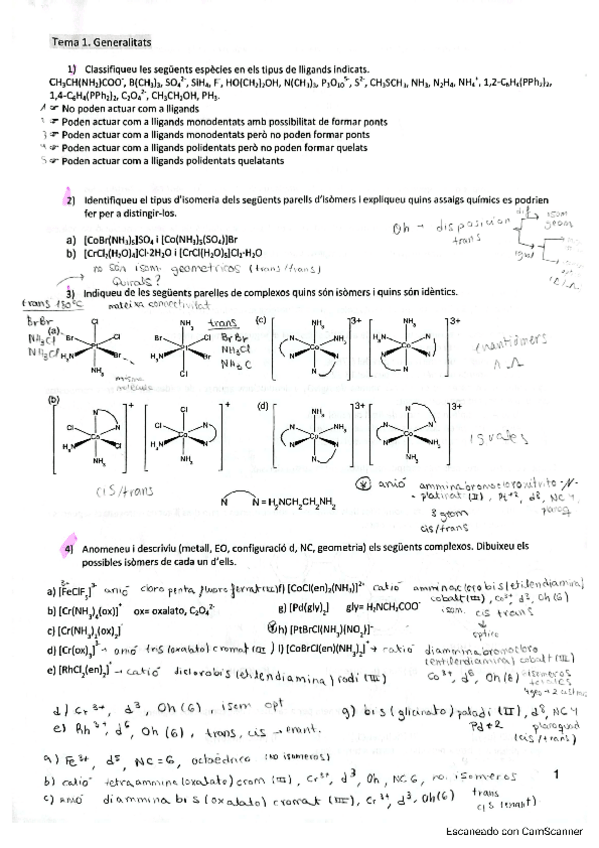 Tema 1. Generalitats
1) Classifiqueu les següents espècies en els tipus de lligands indicats.
CH₃CH(NH₂)COO⁻, B(CH₃)₃, SO₄²⁻, SiH₄, F⁻, HO(CH₂)₂OH, N(CH₃)₃, P₃O₁₀⁵⁻, S²⁻, CH₃SCH₃, NH₃, N₂H₄, NH₄⁺, 1,2-C₆H₄(PPh₂)₂,
1,4-C₆H₄(PPh₂)₂, C₂O₄²⁻, CH₃CH₂OH, PH₃.
1 ☞ No poden actuar com a lligands
☞ Poden actuar com a lligands monodentats amb possibilitat de formar ponts
3 ☞ Poden actuar com a lligands monodentats però no poden formar ponts
4 ☞ Poden actuar com a lligands polidentats però no poden formar quelats
5 ☞ Poden actuar com a lligands polidentats quelatants
2) Identifiqueu el tipus d'isomeria dels següents parells d'isòmers i expliqueu quins assaigs químics es podrien
fer per a distingir-los.
Oh → disposicion
trans
isom
geom
a) [CoBr(NH₃)₅]SO₄ i [Co(NH₃)₅(SO₄)]Br
b) [CrCl₂(H₂O)₄]Cl·2H₂O i [CrCl(H₂O)₅]Cl₂·H₂O
no són isom. geometricos (trans/trans)
Quirals?
3) Indiqueu de les següents parelles de complexos quins són isòmers i quins són idèntics.
trans 180°C
mateixa connectivitat
Br Br
NH₃ Cl
NH₃ Cl
(a)
Cl
Br
Cl
H₃N
Br
NH₃
misma
molécula
NH₃
Br
Cl
H₃N
Br
Cl
trans
Br Br
NH₃ Cl
NH₃ C
(c)
NH₃
N
NH₃
N
N
N
Co
3+
NH₃
H₃N
N
N
N
N
Co
3+
enantiómers
(b)
N
N
Cl
Co
H₃N
Cl
NH₃
+
Cl
N
Co
H₃N
N
Cl
NH₃
+
cis/trans
(d)
NH₃
N
NH₃
Co
N
N
N
3+
NH₃
N
N
Co
N
N
NH₃
3+
iguales
N N = H₂NCH₂CH₂NH₂
anió amminabromocloronitrito-N-
platinat (II), Pt⁺², d⁸, NC 4
cis/trans
4) Anomeneu i descriviu (metall, EO, configuració d, NC, geometria) els següents complexos. Dibuixeu els
possibles isòmers de cada un d'ells.
a) [FeClF₅]³⁻ anió cloropentafluoroferrat(III) f) [CoCl(en)₂(NH₃)]²⁺ catió amminaclorobis(etilendiamina)
cobalt(III), Co³⁺, d⁶, Oh (6)
b) [Cr(NH₃)₄(ox)]⁺ ox= oxalato, C₂O₄²⁻ g) [Pd(gly)₂] gly= H₂NCH₂COO⁻
isom. cis trans
c) [Cr(NH₃)₂(ox)₂]⁻ h) [PtBrCl(NH₃)(NO₂)]⁻
d) [Cr(ox)₃]³⁻ → anió tris(oxalato)cromat(III) i) [CoBrCl(en)(NH₃)₂]⁺ → catió diamminabromocloro
(etilendiamina) cobalt (III)
e) [RhCl₂(en)₂]⁺ → catió diclorobis(etilendiamina) rodi (III) Co³⁺, d⁶, Oh (6) → isómeros
d) Cr³⁺, d³, Oh (6), isom opt
e) Rh³⁺, d⁶, Oh (6), trans, cis → enant.
g) bis(glicinato) paladi (II), d⁸, NC 4
Pd+2
(cis/trans)
a) Fe³⁺, d⁵, NC=6, octaèdrica (no isomeros)
b) catió tetraammina(oxalato) crom (III), Cr³⁺, d³, Oh, NC6, no isomeros
c) anió diamminabis(oxalato) cromat (III), Cr³⁺, d³, Oh(6) trans
cis (enant)
1
Escaneado con CamScanner